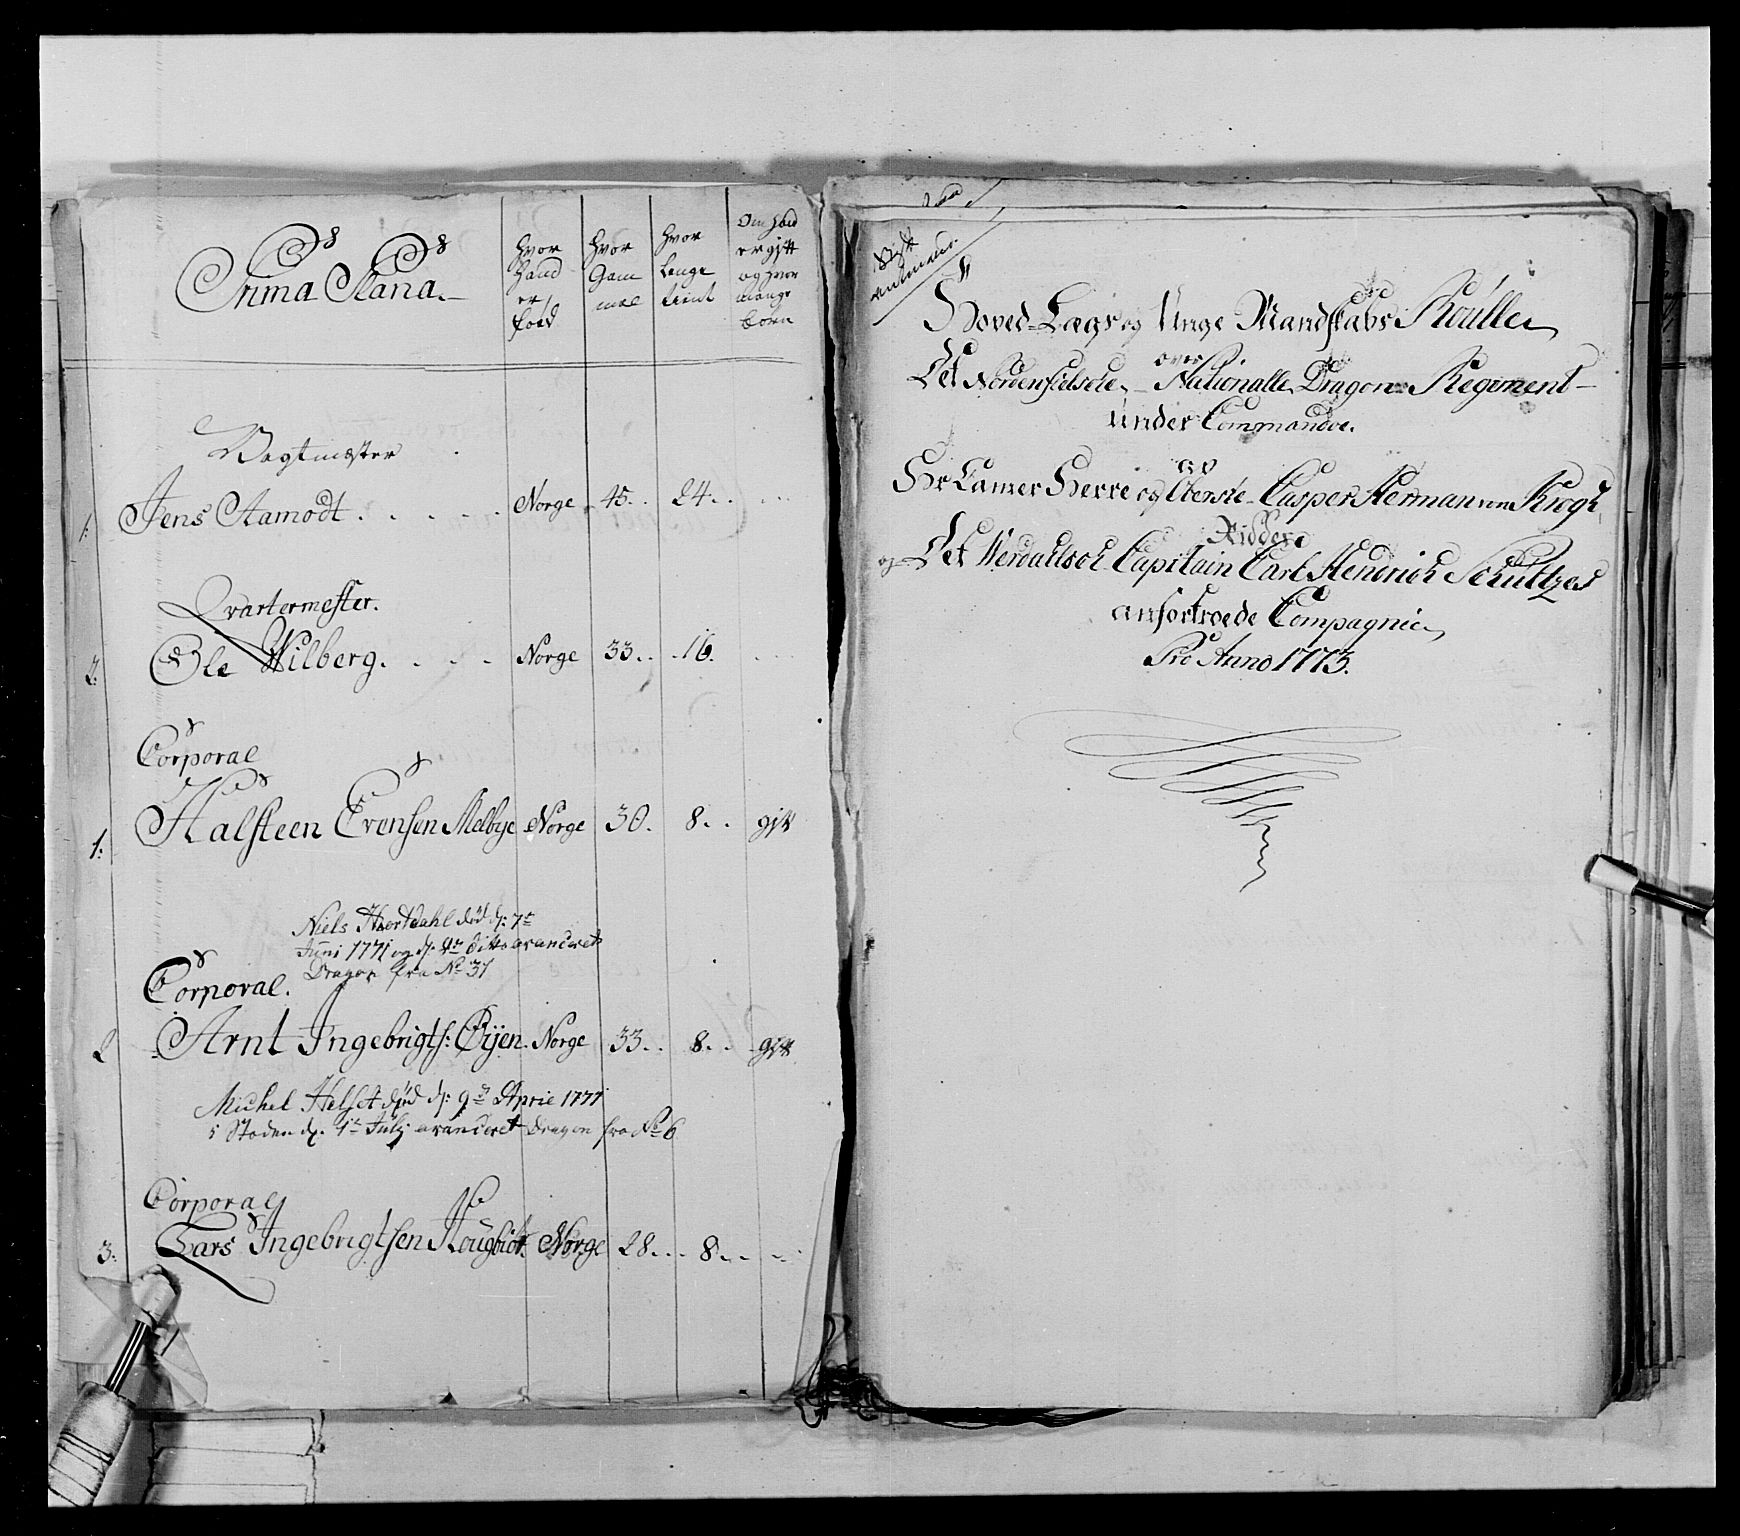 Prima Plana.
Hvor hand er fød
Hvor Gam mel
Hvor Lenge tient
Om hand er gift og hvor mange børn
Vagtmæster
1. Jens Aamodt . . . . . Norge 45. . 24. .
Qvartermester.
2. Ole Wilberg. . . . Norge 33. . 16.
Corporal
1: Halsteen Evensen Melbye Norge 30. 8. . gift
Niels Hiortdahl død d: 7de
Juni 1771 og d. 4de ditto avanceret
Dragon fra No 31
Corporal.
2 Arnt Ingebrigts: Øyen. Norge 33. . 8. . gift
Michel Helset død d: 9de Aprie 1771
i Steden d. 1te Julj avanceret Dragon fra No 6
Corporal
3: Lars Ingebrigtsen Norge 28. . . 8. .
Hoved-Lægs og Unge Mandskabs Roulle
over
Det Nordenfielske Nationalle Dragon Regiment
under Commandoe.
af
Hr Camer Herre og Oberste Casper Herman von Krogh
Riddere
og Det Werdalsch Capitain Carl Hendrich Schultzes
anfortroede Compagnie
Pro Anno 1773.